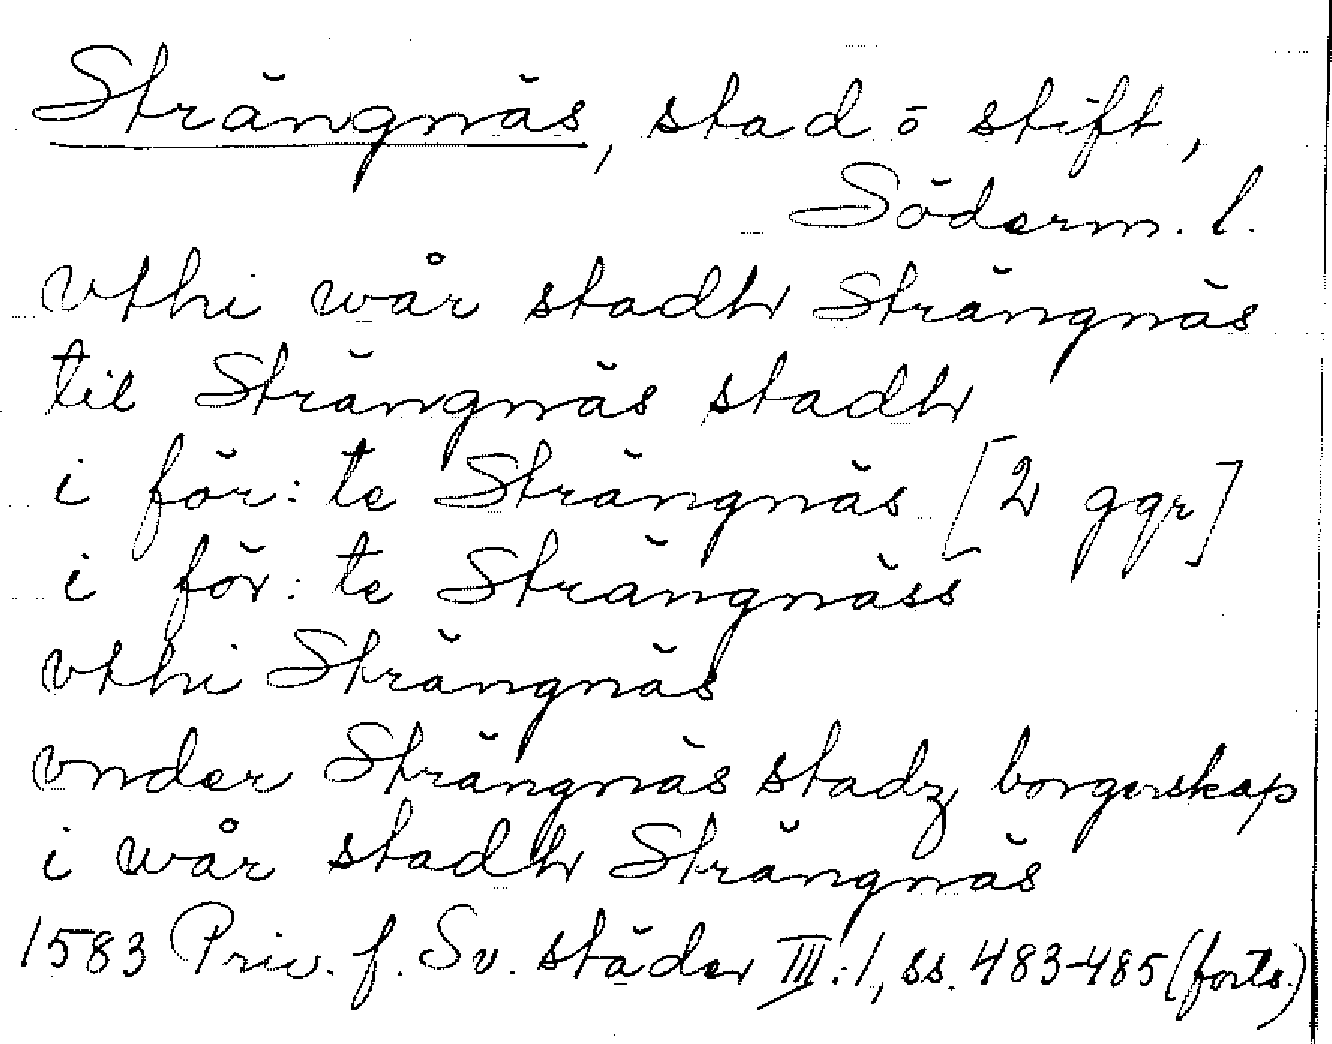 Strängnäs, stad o stift,
Söderm. l.
vthi wår stadh Strängnäs
til Strängnäs stadh
i för:te Strängnäs [2 ggr]
i för:te Strängnäss
vthi Strängnäs
vnder Strängnäs stadz borgerskap
i wår stadh Strängnäs
1583 Priv. f. Sv. städer III:1, ss. 483-485 (forts.)